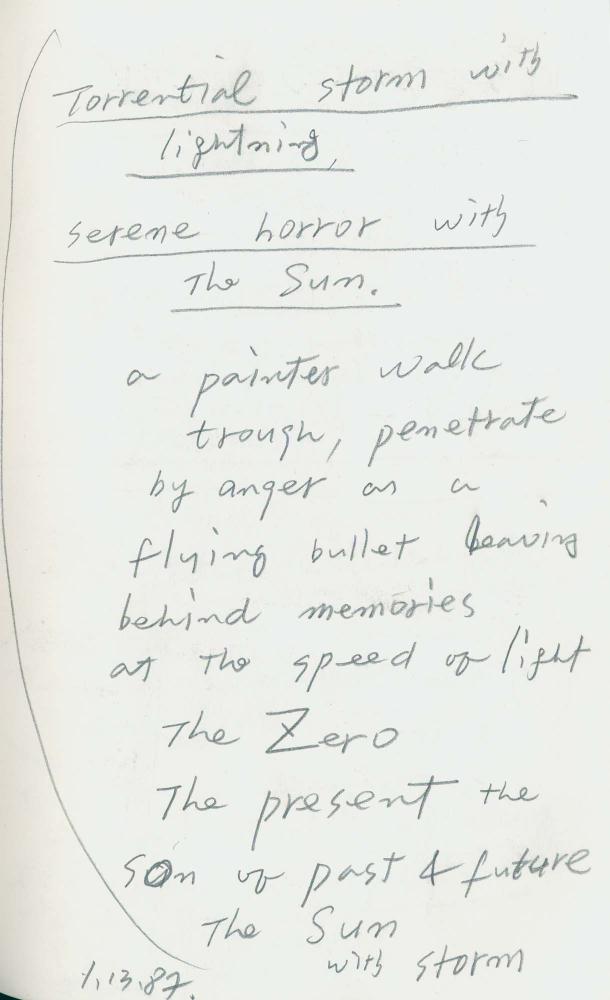 Torrential storm with
lightning,
serene horror with
The Sun.
a painter walk
trough, penetrate
by anger as a
flying bullet leaving
behind memories
at the speed of light
The Zero
The present the
son of past & future
The Sun
with storm
1.13.87.